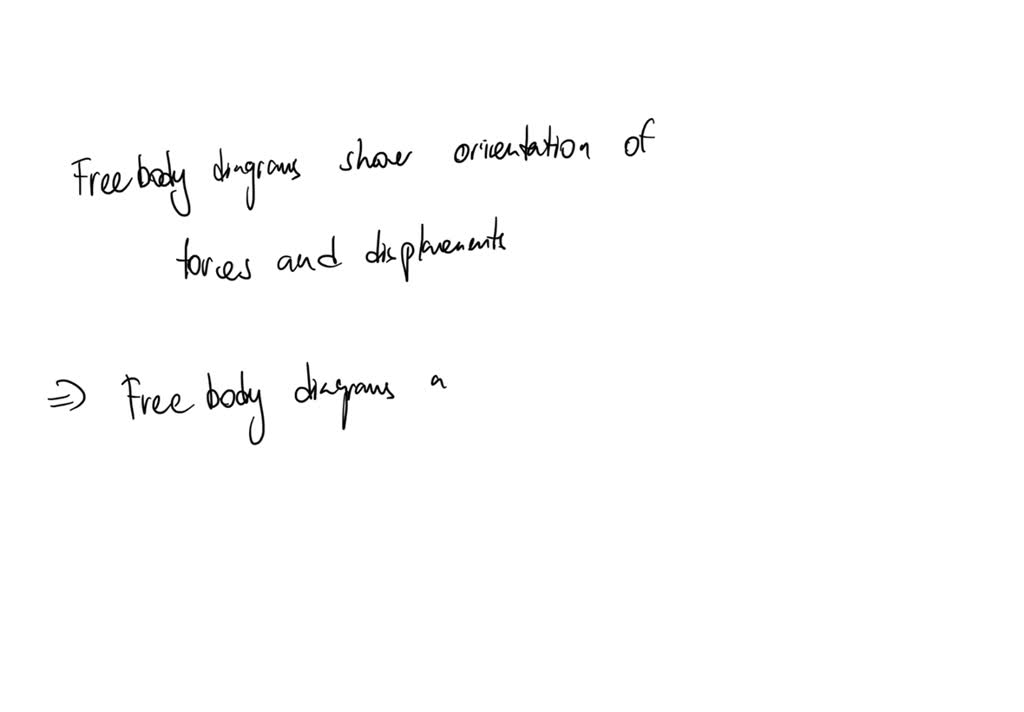 Free body diagrams show orientation of
forces and displacements
⇒ Free body diagrams a